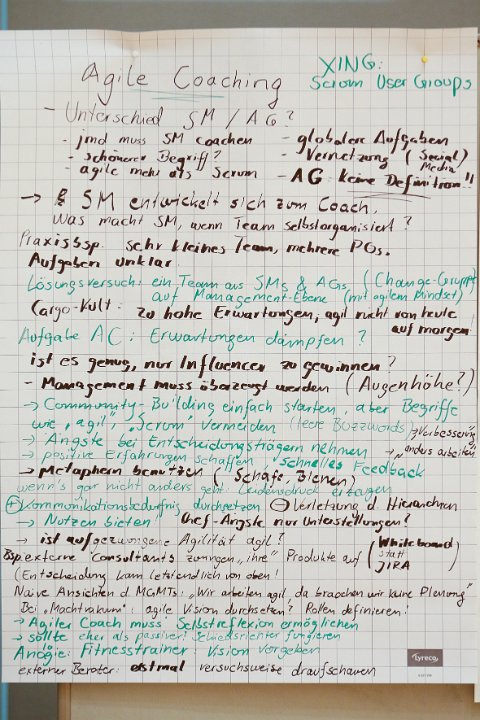 XING:
Scrum User Groups
Agile Coaching
- Unterschied SM / AG?
- jmd muss SM coachen
- schönerer Begriff?
- agile mehr als Scrum
- globalere Aufgaben
- Vernetzung (Social Media
- AG: keine Definition!!
→ SM entwickelt sich zum Coach.
Was macht SM, wenn Team selbstorganisiert?
Praxisbsp. sehr kleines Team, mehrere POs.
Aufgaben unklar.
Lösungsversuch: ein Team aus SMs & AGs (Change-Gruppe
auf Management-Ebene (mit agilem Mindset)
Cargo-Kult: zu hohe Erwartungen, agil nicht von heute
auf morgen!
Aufgabe AC: Erwartungen dämpfen?
ist es genug, nur Influencer zu gewinnen?
- Management muss überzeugt werden (Augenhöhe?)
→ Community-Building einfach starten, aber Begriffe
wie "agil", "Scrum" vermeiden (leere Buzzwords)
→ Verbesserung
→ Ängste bei Entscheidungsträgern nehmen
→ anders arbeiten
→ positive Erfahrungen schaffen, schnelles Feedback
→ Metaphern benutzen (Schafe, Bienen)
wenn's gar nicht anders geht: Leidensdruck erzeugen
+ Kommunikationsbedürfnis durchsetzen - Verletzung d. Hierarchien
→ Nutzen bieten Chef-Ängste nur Unterstellungen?
→ ist aufgezwungene Agilität agil?
Bsp. externe Consultants zwingen "ihre" Produkte auf (Whiteboard
statt
JIRA
(Entscheidung kam letztendlich von oben!
Naive Ansichten d MGMTs: "Wir arbeiten agil, da brauchen wir keine Planung"
Bei "Machtvakuum": agile Vision durchsetzen? Rollen definieren!
→ Agiler Coach muss Selbstreflexion ermöglichen
→ sollte eher als passiver Schiedsrichter fungieren
Anologie: Fitnesstrainer: Vision vorgeben
externer Berater: erstmal versuchsweise draufschauen
Lyreco